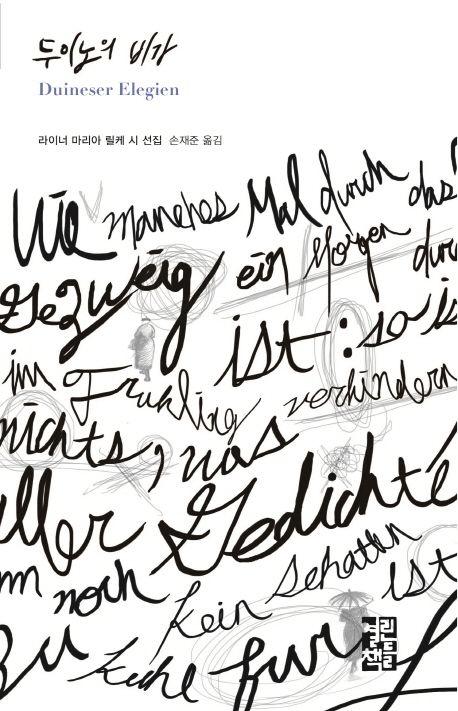 두이노의 비가
Duineser Elegien
라이너 마리아 릴케 시 선집 손재준 옮김
Wie manches Mal durch das
Gezweig ein Morgen durch
ist: so is
im Fruhling verhindern
nichts, was
aller Gedichte
noch kein Schatten ist
zu kuhl fur
열린책들